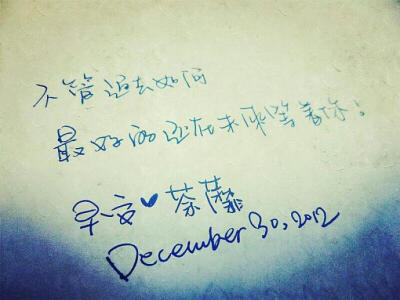 不管过去如何
最好的还在未来等着你!
早安♥荼蘼
December 30, 2012